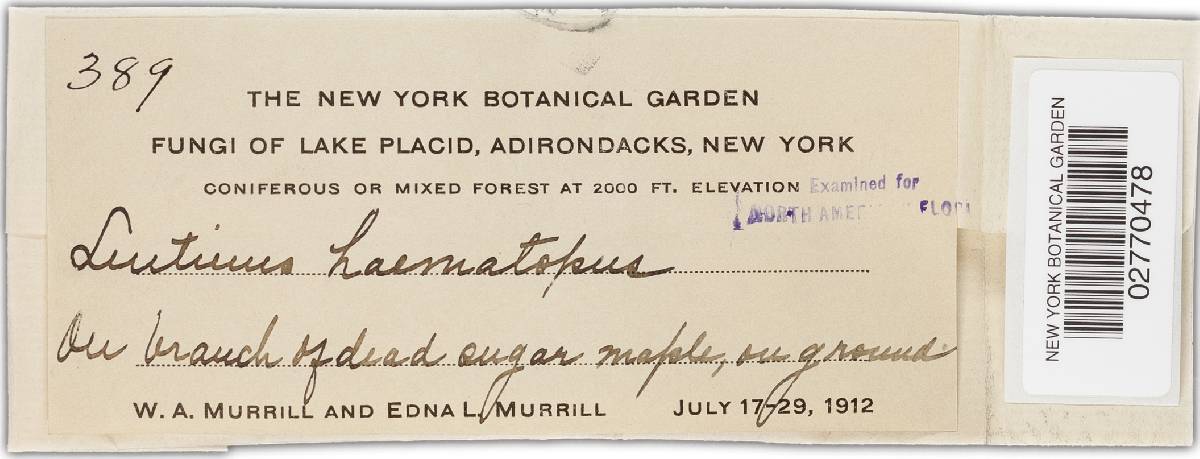 389
THE NEW YORK BOTANICAL GARDEN
FUNGI OF LAKE PLACID, ADIRONDACKS, NEW YORK
CONIFEROUS OR MIXED FOREST AT 2000 FT. ELEVATION
Examined for
NORTH AMER FLOR
Lentinus haematopus
On branch of dead sugar maple, on ground.
W. A. MURRILL AND EDNA L. MURRILL JULY 17-29, 1912
NEW YORK BOTANICAL GARDEN
02770478